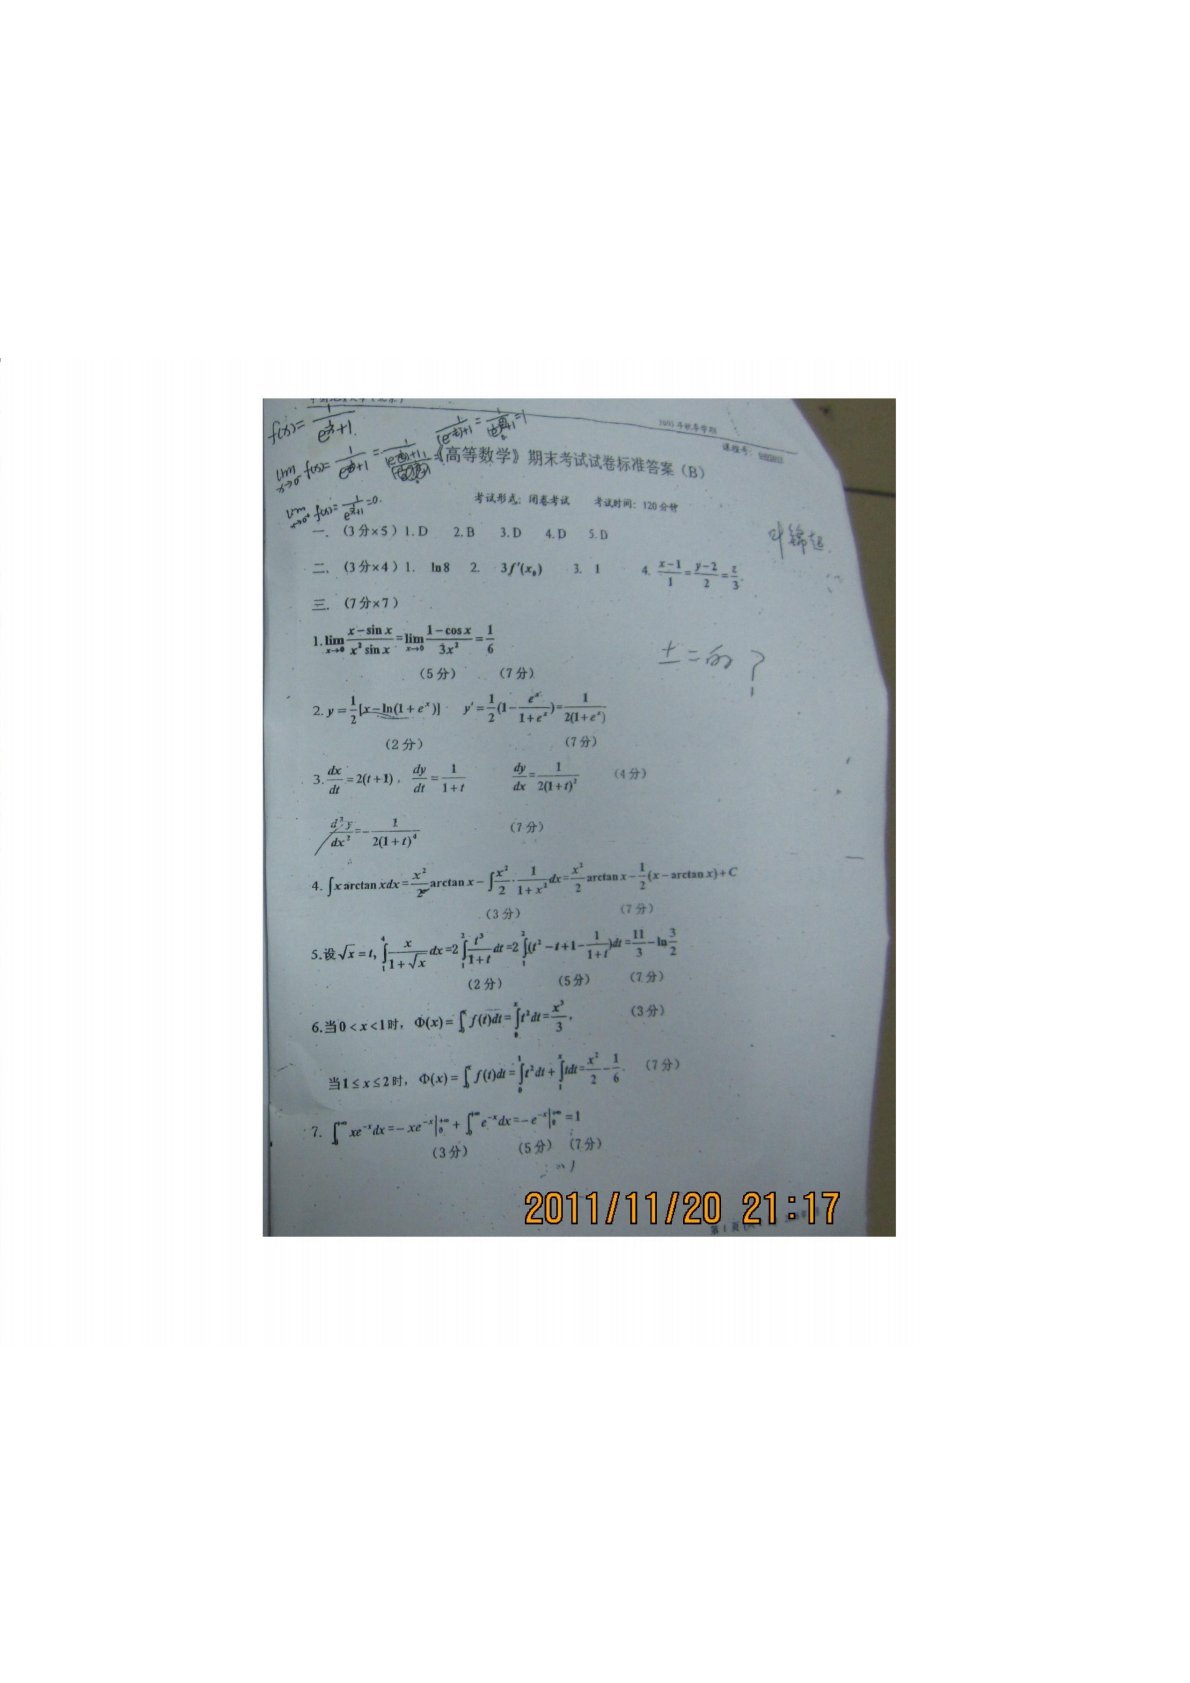 f(x)= 1/(e^{1/x}+1)
《高等数学》期末考试试卷标准答案（B）
考试形式：闭卷考试 考试时间：120分钟
一. （3分×5）1. D 2. B 3. D 4. D 5. D
二. （3分×4）1. ln8 2. 3f′(x₀) 3. 1 4. (x-1)/1 = (y-2)/2 = z/3.
三. （7分×7）
1. lim_{x→0} (x-sin x)/(x² sin x) = lim_{x→0} (1-cos x)/(3x²) = 1/6
（5分） （7分）
2. y = 1/2[x-ln(1+e^x)] y′ = 1/2(1- e^x/(1+e^x)) = 1/(2(1+e^x))
（2分） （7分）
3. dx/dt = 2(t+1), dy/dt = 1/(1+t) dy/dx = 1/(2(1+t)²) （4分）
d²y/dx² = - 1/(2(1+t)⁴) （7分）
4. ∫x arctan xdx = x²/2 arctan x - ∫x²/2 · 1/(1+x²) dx = x²/2 arctan x - 1/2 (x-arctan x)+C
（3分） （7分）
5. 设√x = t, ∫₁⁴ x/(1+√x) dx =2∫₁² t³/(1+t) dt =2∫₁² (t²-t+1- 1/(1+t))dt = 11/3 - ln 3/2
（2分） （5分） （7分）
6. 当0<x<1时, Φ(x)=∫₀ˣ f(t)dt = ∫₀ˣ t²dt = x³/3, （3分）
当1≤x≤2时, Φ(x)=∫₀ˣ f(t)dt = ∫₀¹ t²dt + ∫₁ˣ tdt = x²/2 - 1/6. （7分）
7. ∫₀^{+∞} xe^{-x}dx = -xe^{-x}|₀^{+∞} + ∫₀^{+∞} e^{-x}dx = -e^{-x}|₀^{+∞} =1
（3分） （5分） （7分）
2011/11/20 21:17